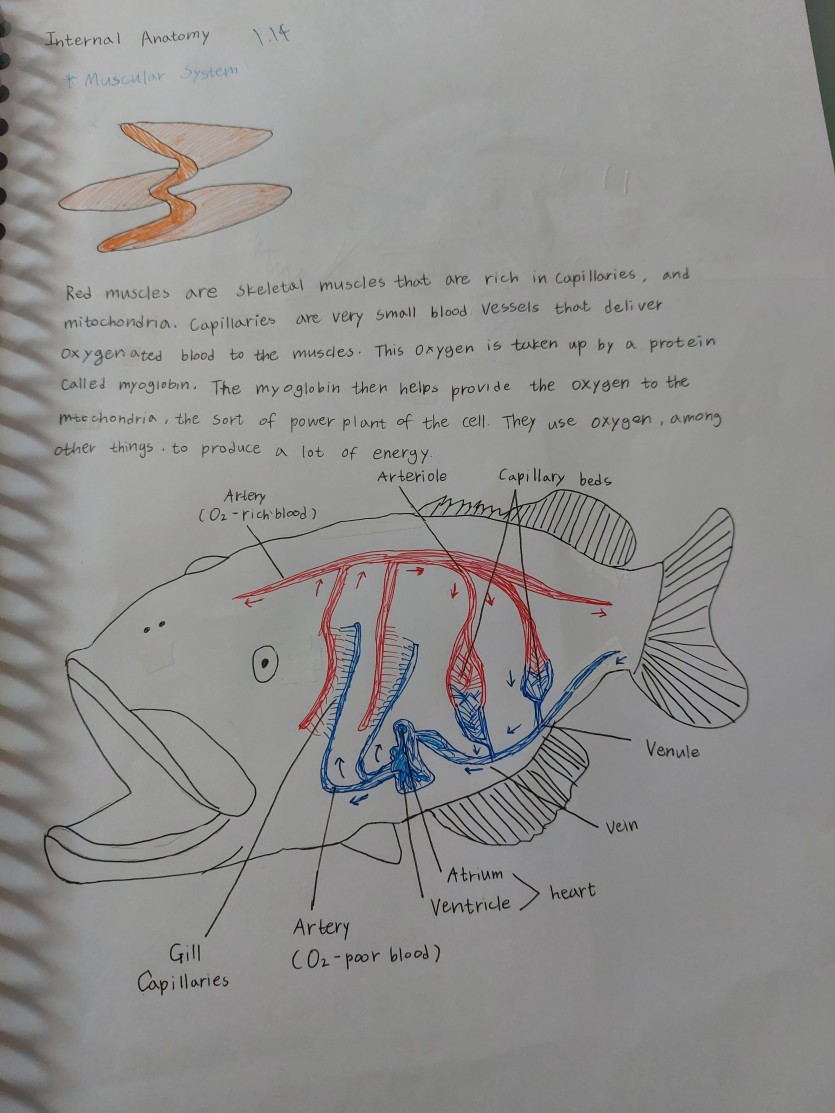 Internal Anatomy 1.14
+ Muscular System
Red muscles are skeletal muscles that are rich in capillaries, and
mitochondria. Capillaries are very small blood vessels that deliver
oxygenated blood to the muscles. This oxygen is taken up by a protein
called myoglobin. The myoglobin then helps provide the oxygen to the
mtochondria, the sort of power plant of the cell. They use oxygen, among
other things. to produce a lot of energy.
Arteriole
Capillary beds
Artery
(O₂-rich blood)
Venule
Vein
Atrium
Ventricle
heart
Artery
(O₂-poor blood)
Gill
Capillaries